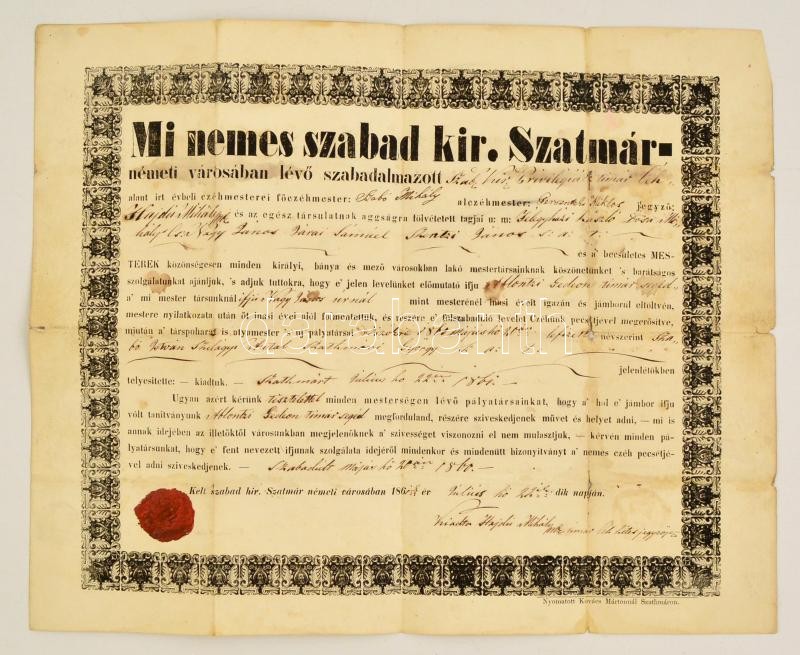 Mi nemes szabad kir. Szatmár-
németi városában lévő szabadalmazott
alant irt évbeli czéhmesterei főczéhmester: Szabó Mihály alczéhmester: jegyző:
Hajdú Mihály és az egész társulatnak aggságra fölvétetett tagjai u. m:
Nagy János Várai Sámuel János s: a: t:
és a' becsületes MES-
TEREK közönségesen minden királyi, bánya és mező városokban lakó mestertársainknak köszönetünket 's barátságos
szolgálatunkat ajánljuk, 's adjuk tuttokra, hogy e' jelen levelünket előmutató ifju Ablonczi Gedeon timár segéd
a' mi mester társunknál ifju Nagy János urnál mint mesterénél inasi éveit igazán és jámborul eltöltvén,
mester nyilatkozata után öt inasi évei alól fölmentettük, és részére e' fölszabaditó levelet Czéhünk pecsétjével megerősitve,
miután a' társpoharat is nyolcz mester 's mi pályatársai 1860 május hó 20 névszerint Sza-
bó István Szilágyi Antal Szathmári György s: a: t:
jelenlétökben
telyesitette: — kiadtuk. — Szathmárt Julius hó 22én 1861. —
Ugyan azért kérünk tisztelettel minden mesterségen lévő pályatársainkat, hogy a' hol e' jámbor ifju
vólt tanitványunk Ablonczi Gedeon timár segéd megforduland, részére sziveskedjenek müvet és helyet adni, — mi is
annak idejében az illetőktől városunkban megjelenőknek a' szivességet viszonozni el nem mulasztjuk, — kérvén minden pá-
lyatársunkat, hogy e' fent nevezett ifjunak szolgálata idejéről mindenkor és mindenütt bizonyitványt a' nemes czéh pecsétjé-
vel adni sziveskedjenek. — Szabadúlt Május hó 20án 1860. —
Kelt szabad kir. Szatmár németi városában 186 ik év Július hó 22ik dik napján.
Kiadta Hajdú Mihály mk timár czéh hites jegyzője
Nyomatott Kovács Mártonnál Szathmáron.
darabanth